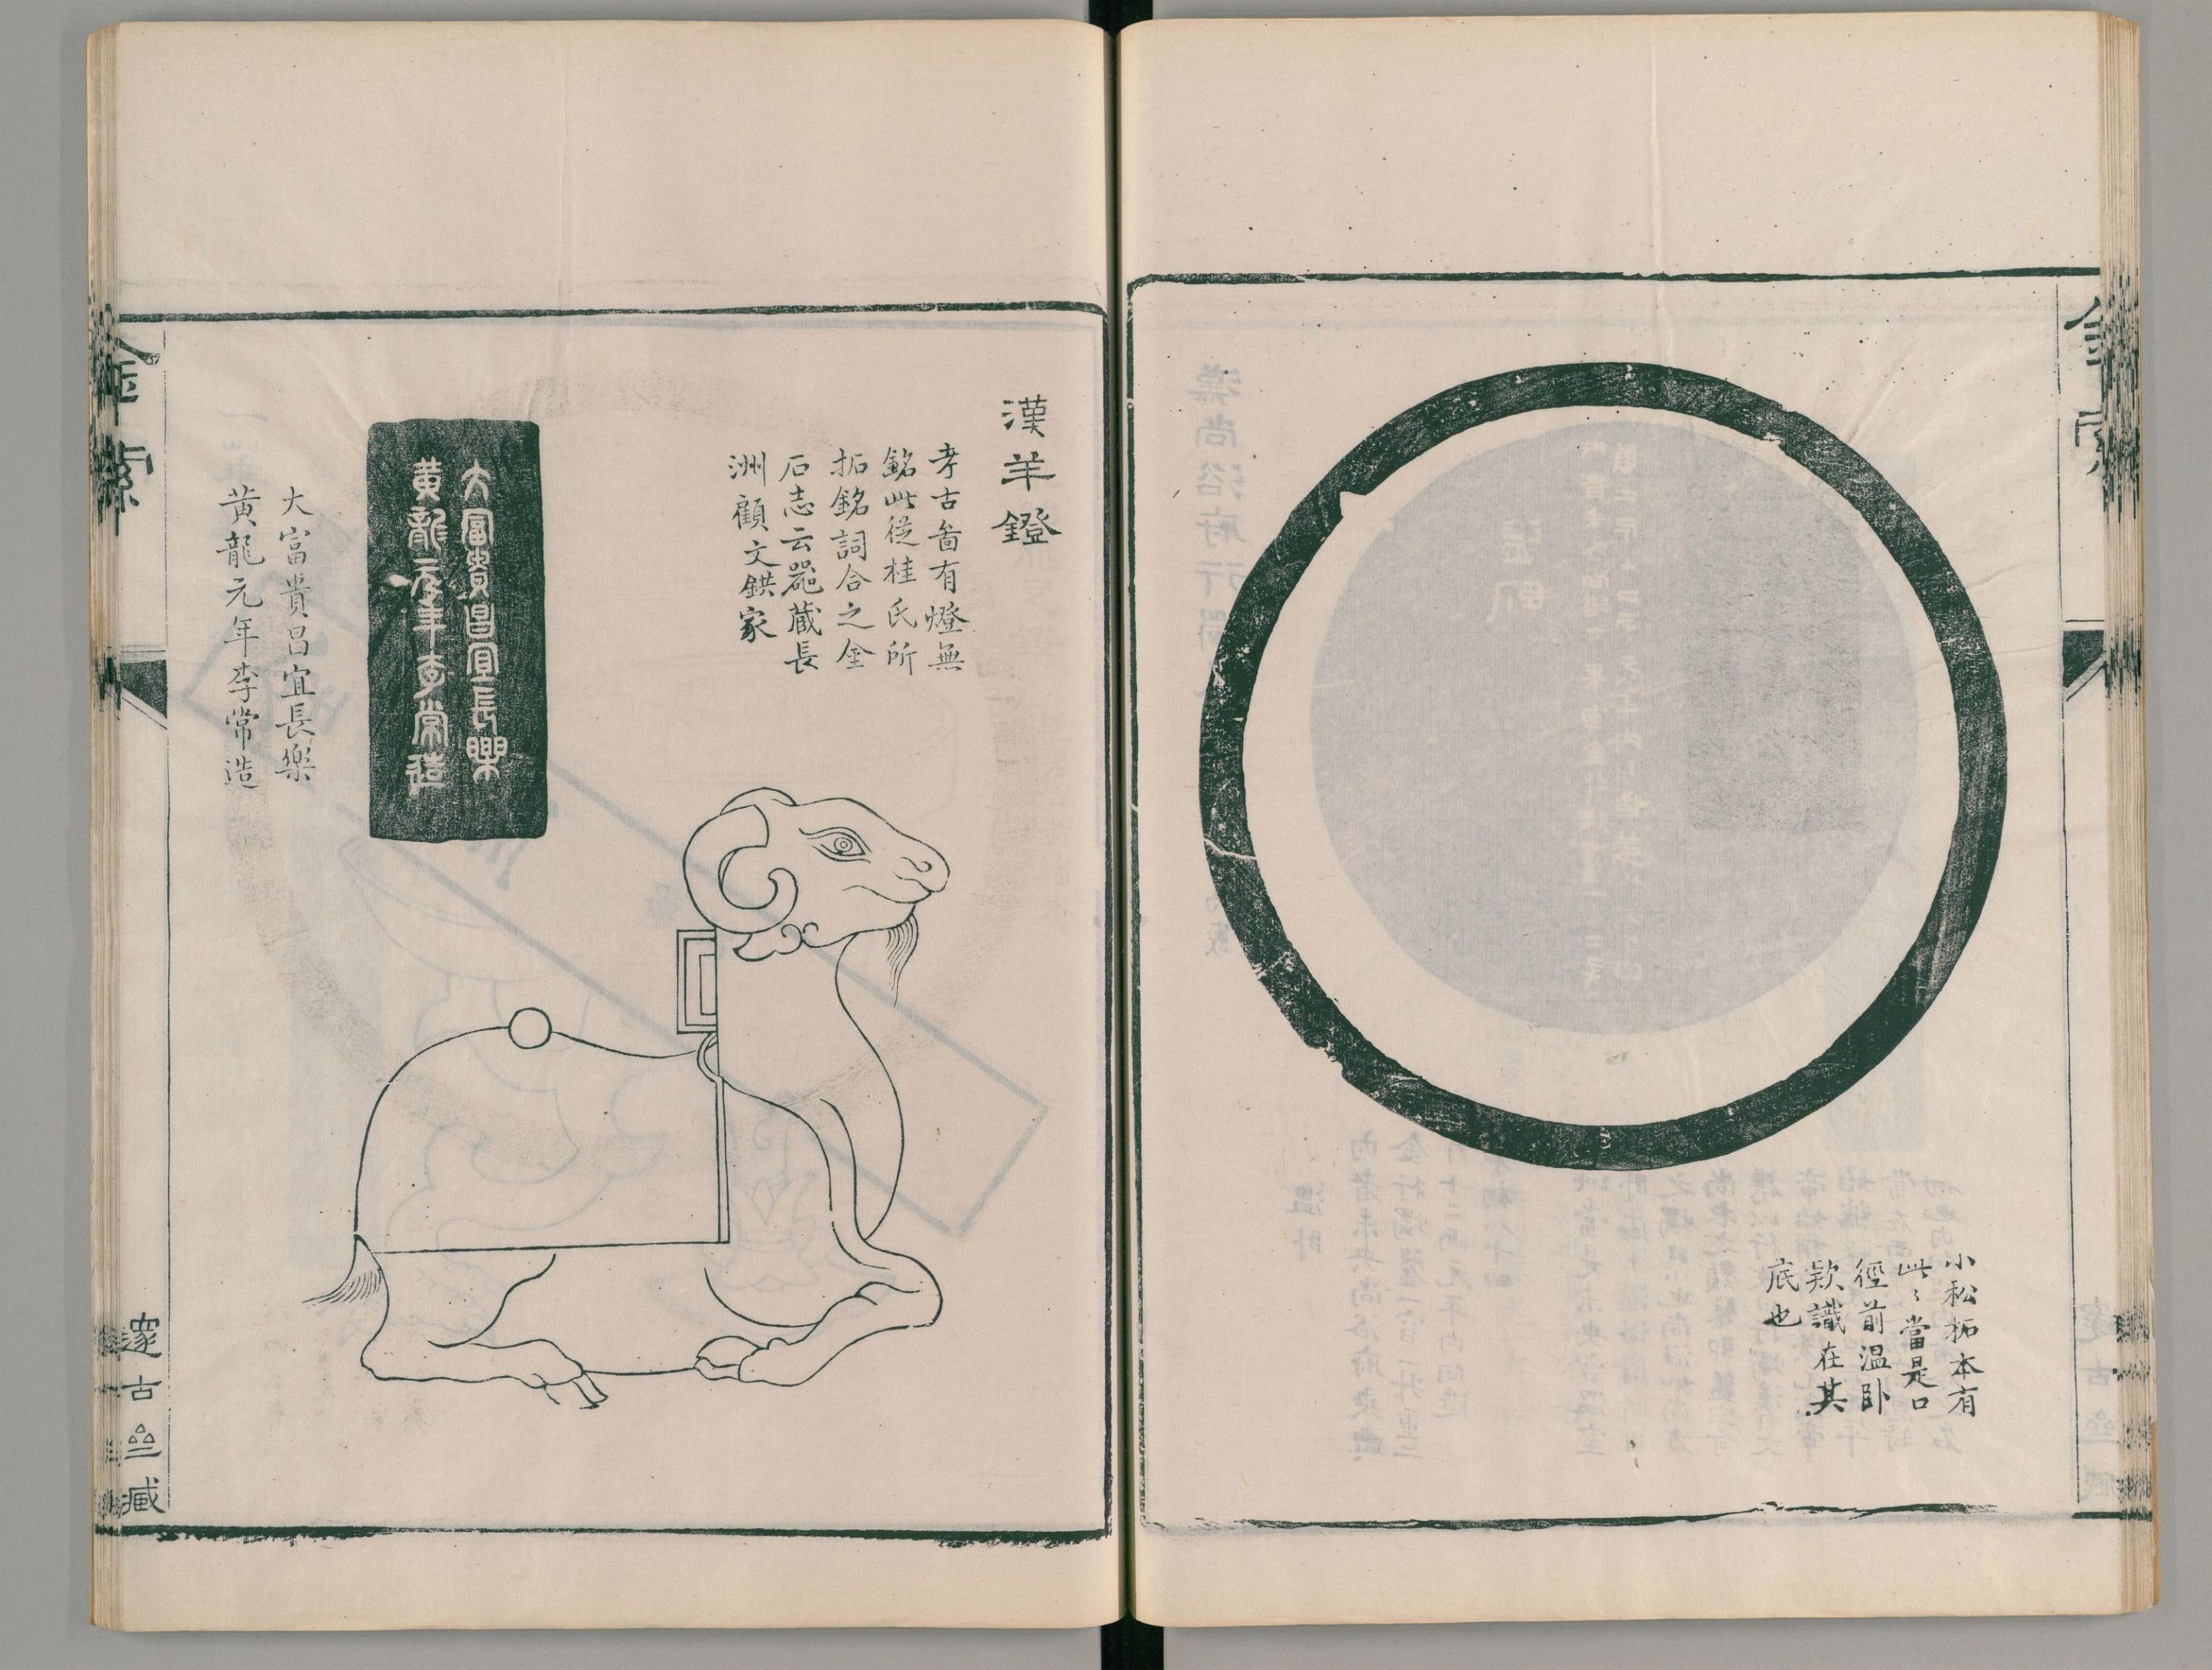 金索
小松拓本有
此當是口
徑前温卧
欵識在其
底也
漢羊鐙
考古啚有燈無
銘此從桂氏所
拓銘詞合之金
石志云器蔵長
洲顧文鉷家
大富貴昌宜長樂
黄龍元年李常造
大富貴昌宜長樂
黄龍元年李常造
金索
邃古
藏